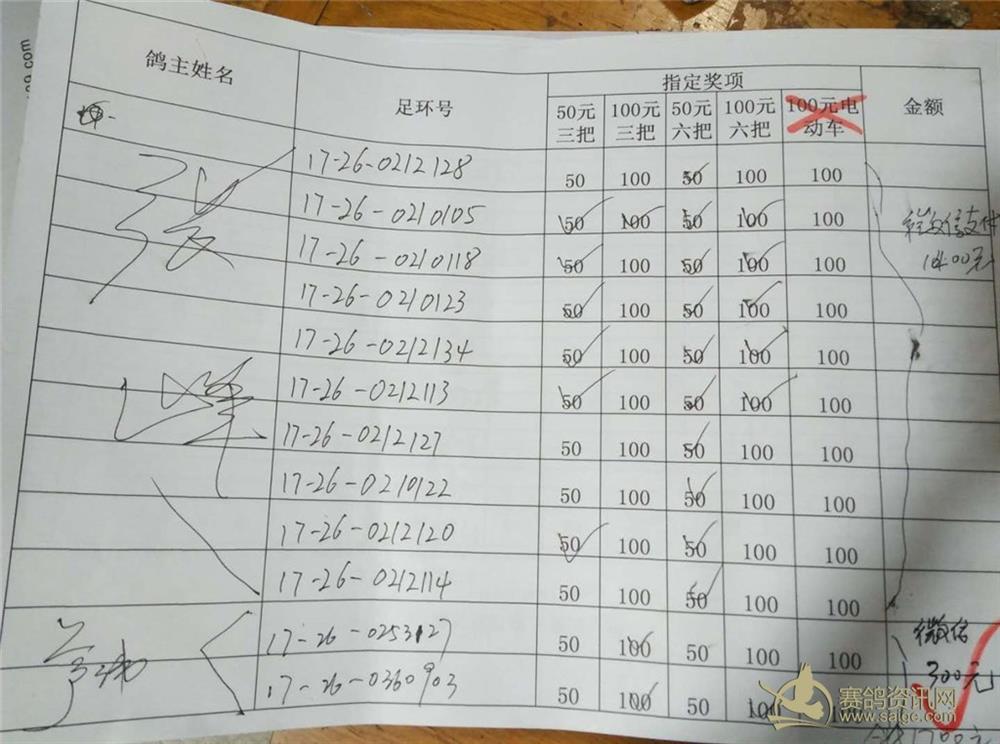 鸽主姓名 足环号 指定奖项 金额
50元三把 100元三把 50元六把 100元六把 100元电动车
17-26-0212128 50 100 50 100 100
17-26-0210105 50 100 50 100 100
17-26-0210118 50 100 50 100 100
微信支付
1400元
17-26-0210123 50 100 50 100 100
17-26-0212134 50 100 50 100 100
17-26-0212113 50 100 50 100 100
17-26-0212127 50 100 50 100 100
17-26-0210122 50 100 50 100 100
17-26-0212120 50 100 50 100 100
17-26-0212114 50 100 50 100 100
17-26-0253127 50 100 50 100 100
微信
300元
17-26-0360903 50 100 50 100
张
峰
赛鸽资讯网
www.saige.com
1700元